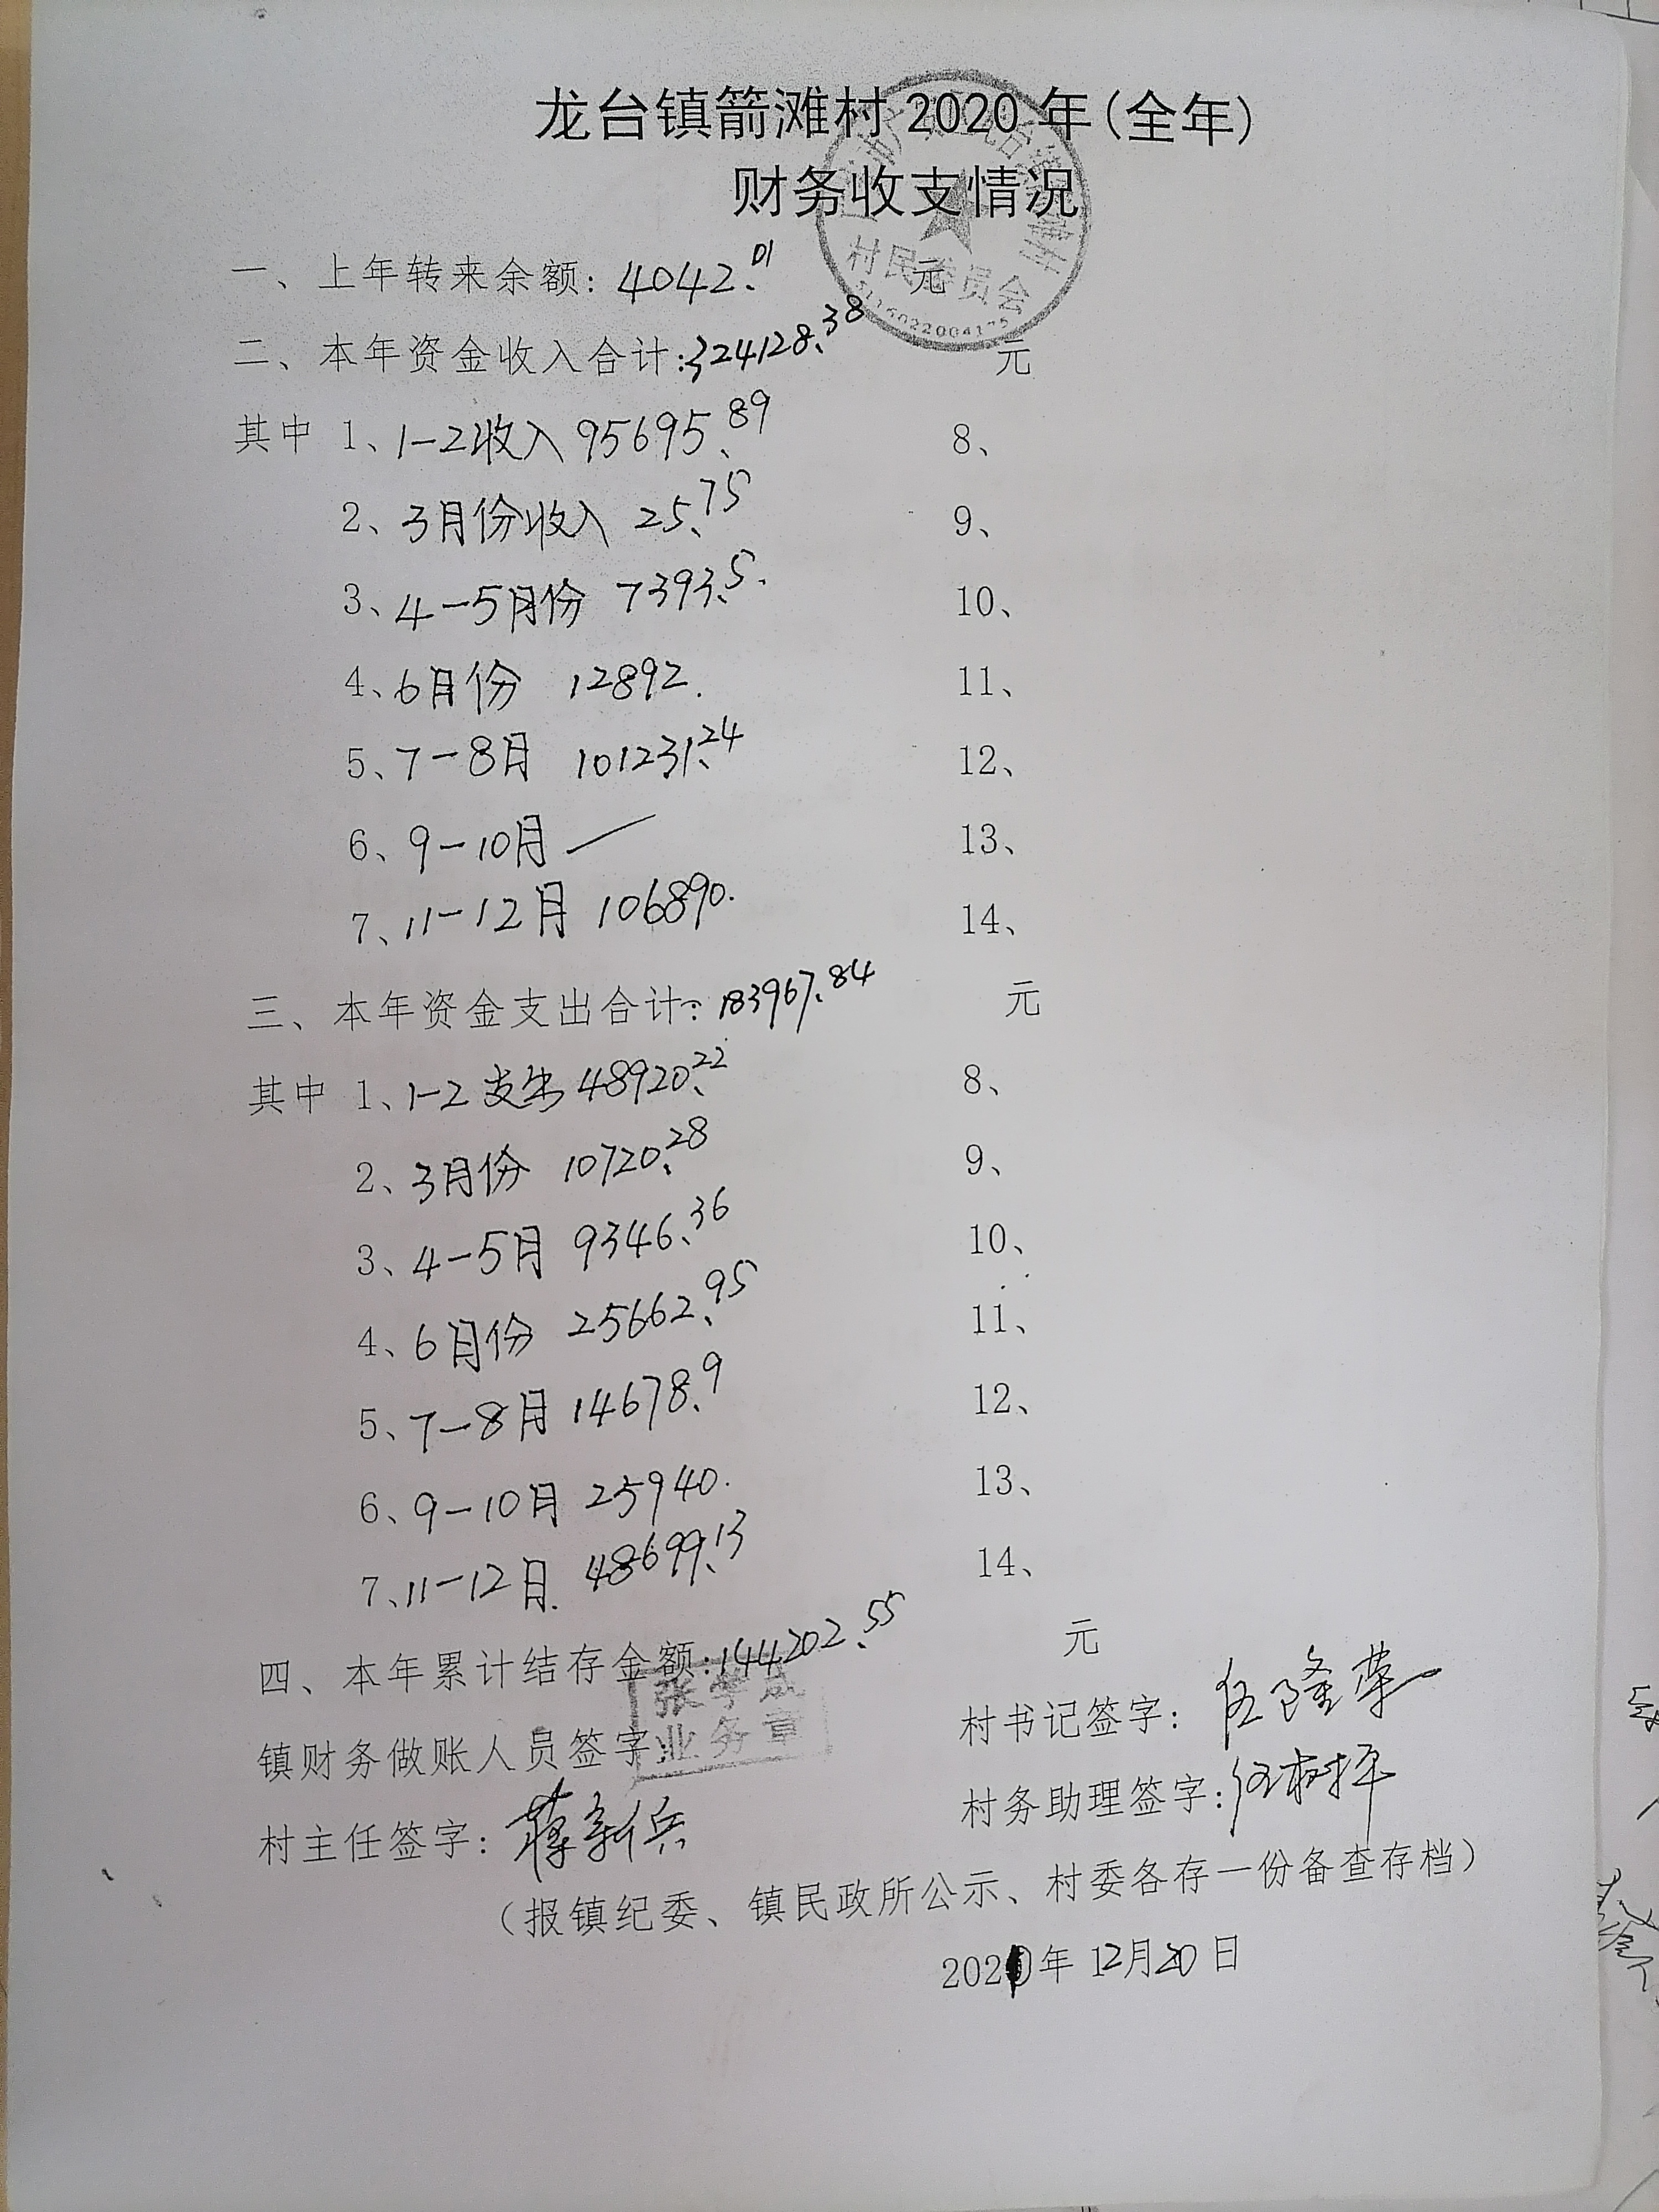 龙台镇箭滩村2020年(全年)
财务收支情况
村民委员会
5116022004175
一、上年转来余额: 4042.01 元
二、本年资金收入合计: 324128.38 元
其中 1、1-2收入 95695.89 8、
2、3月份收入 25.75 9、
3、4-5月份 7393.5. 10、
4、6月份 12892. 11、
5、7-8月 101231.24 12、
6、9-10月 — 13、
7、11-12月 106890. 14、
三、本年资金支出合计: 183967.84 元
其中 1、1-2支出 48920.22 8、
2、3月份 10720.28 9、
3、4-5月 9346.36 10、
4、6月份 25662.95 11、
5、7-8月 14678.9 12、
6、9-10月 25940. 13、
7、11-12月. 48699.13 14、
四、本年累计结存金额: 144202.55 元
张学成
业务章
镇财务做账人员签字: 村书记签字: 伍隆荣
村主任签字: 蒋新兵 村务助理签字:
(报镇纪委、镇民政所公示、村委各存一份备查存档)
2020年12月20日